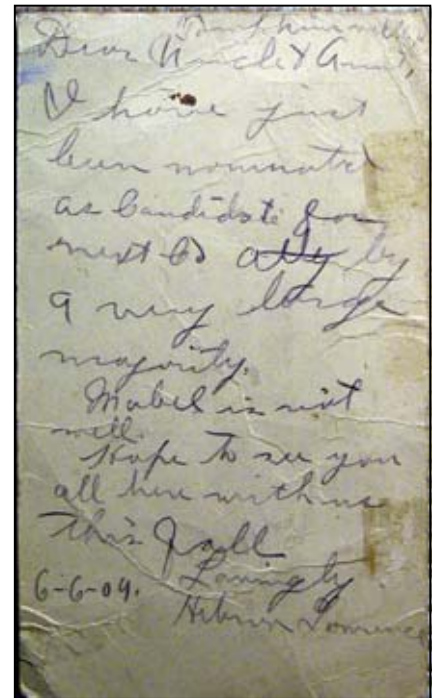 Dear Uncle & Aunt,
I have just
been nominated
as Candidate for
next Co atty by
a very large
majority.
Mabel is not
well.
Hope to see you
all here with us
this fall
Lovingly
6-6-04.